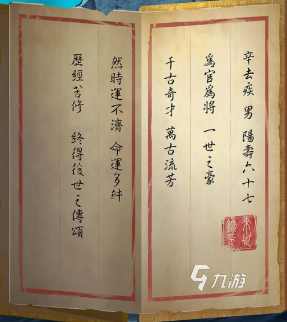 辛去疾 男 陽壽六十七
為官為將 一世之豪
千古奇才 萬古流芳
然時運不濟 命運多舛
歷經苦修 終得後世之傳頌
九游